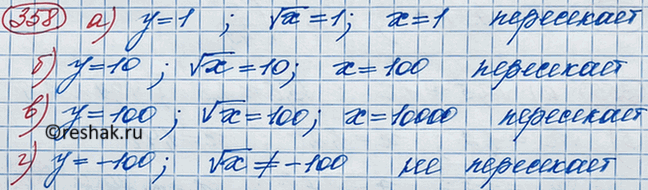 358 а) y=1 ; √x=1; x=1 пересекает
б) y=10 ; √x=10; x=100 пересекает
в) y=100 ; √x=100; x=10000 пересекает
©reshak.ru
г) y=-100; √x≠-100 не пересекает